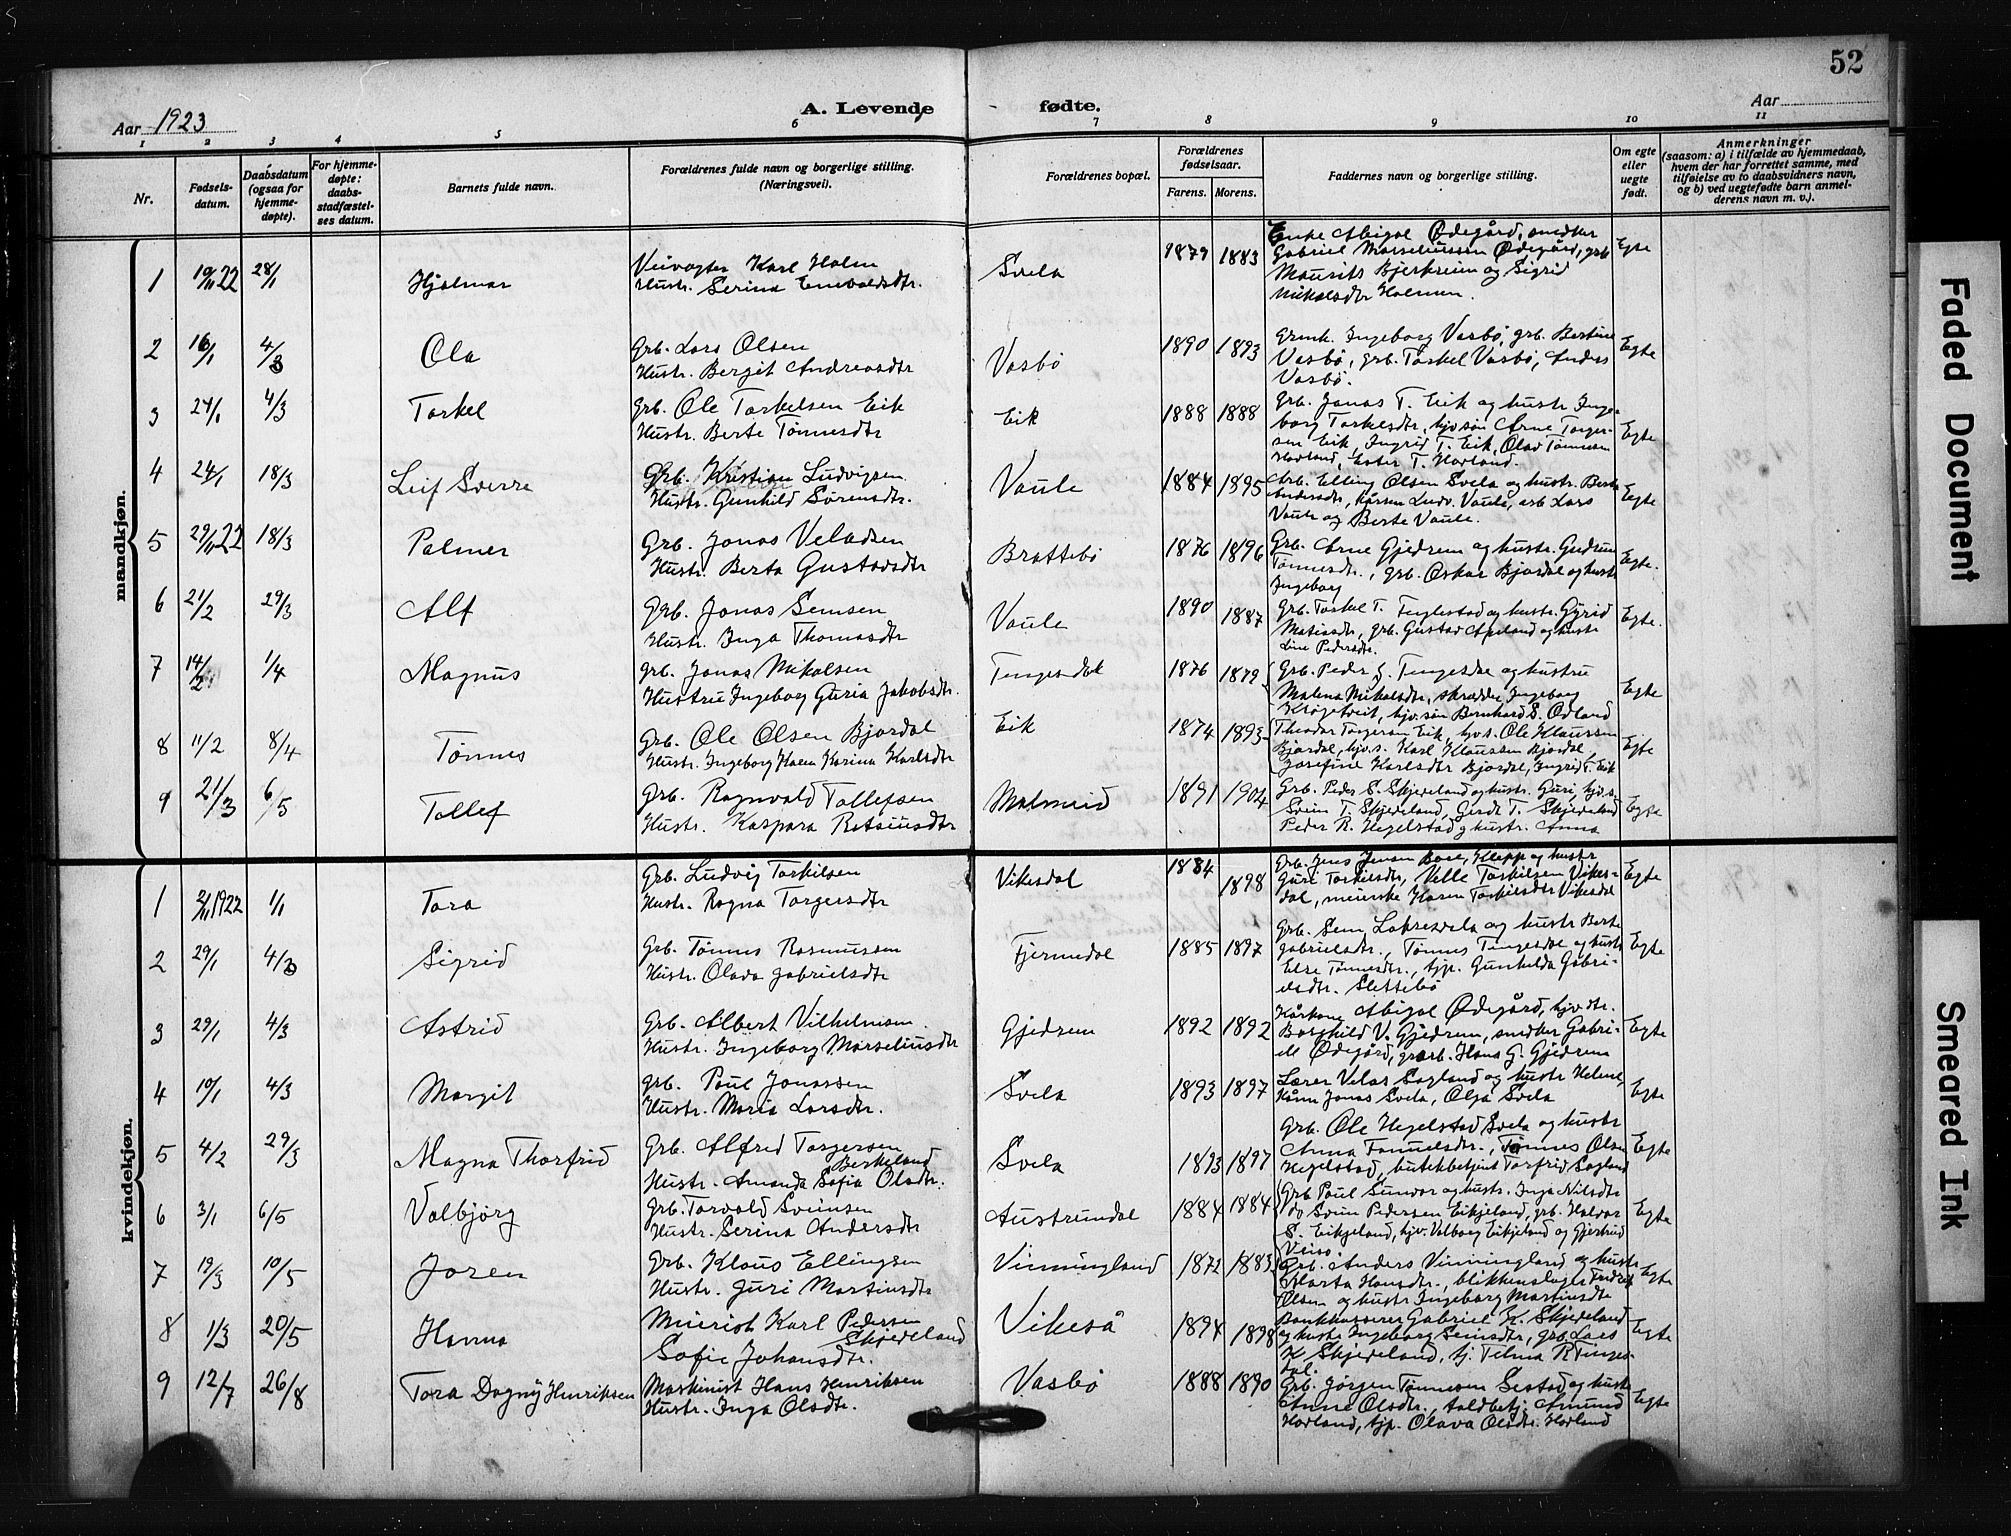 52
A. Levende fødte.
Aar 1923
Aar
1 2 3 4 5 6 7 8 9 10 11
Nr.
Fødsels-
datum.
Daabsdatum
(ogsaa for
hjemme-
døpte).
For hjemme-
døpte:
daabs-
stadfæstel-
ses datum.
Barnets fulde navn.
Forældrenes fulde navn og borgerlige stilling.
(Næringsvei).
Forældrenes bopæl.
Forældrenes
fødselsaar.
Farens. Morens.
Faddernes navn og borgerlige stilling.
Om egte
eller
uegte
født.
Anmerkninger
(saasom: a) i tilfælde av hjemmedaab,
hvem der har forrettet samme, med
tilføielse av to daabsvidners navn,
og b) ved uegtefødte barn anmel-
derens navn m. v.).
mandkjøn.
1 19/11 22 28/1 Hjalmar
Veivogter Karl Holm
Hustr. Serina Enevaldsdtr.
Svela 1879 1883
Enke Abigal Ødegård, smedker
Gabriel Marseliussen Ødegård, grb.
Maurits Bjerkreim og Sigrid
Mikalsdtr Holmen.
Egte
2 16/1 4/3 Ola
Grb. Lars Olsen
Hustr. Bergit Andreasdtr
Vasbø 1890 1893
Grmk. Ingeborg Vasbø, grb. Bertine
Vasbø, grb. Torkel Vasbø, Anders
Vasbø.
Egte
3 27/1 4/3 Torkel
Grb. Ole Torkelsen Eik
Hustr. Berte Tønnesdtr
Eik 1888 1888
Grb. Jonas T. Eik og hustr Inge-
borg Torkelsdtr, hjv.søn Arne Torger-
sen Eik, Ingrid T. Eik, Olav Tønnesen
Hovland, Ester T. Hovland.
Egte
4 24/1 18/3 Leif Sverre
Grb. Kristian Ludvigsen
Hustr. Gunhild Sørensdtr.
Vaule 1884 1895
Grb. Elling Olsen Svela og hustr. Berte
Andersdtr, Ludv. Vaule, Lars
Vaule og Berte Vaule.
Egte
5 29/11 22 18/3 Palmer
Grb. Jonas Veladsen
Hustr. Berta Gustavsdtr
Brattebø 1876 1896
Grb. Arne Gjedrem og hustr. Gudrun
Tønnesdtr., grb. Oskar Bjordal og hustr
Ingeborg
Egte.
6 21/2 29/3 Alf
Grb. Jonas Semsen
Hustr. Inga Thomasdtr
Vaule 1890 1887
Grb. Torkel T. Tengesdal og hustr. Gyrid
Matiasdtr, grb. Gustav Apeland og hustr
Line Pedersdtr.
Egte.
7 14/2 1/4 Magnus
Grb. Jonas Mikalsen
Hustru Ingeborg Guria Jakobsdtr.
Tengesdal 1876 1879
Grb. Peder J. Tengesdal og hustru
Malena Mikalsdtr, skrædder Ingeborg
hjv.søn Bernhard S. Ødland
Egte
8 11/2 8/4 Tønnes
Grb. Ole Olsen Bjordal
Hustr. Ingeborg Karen Karina Karlsdtr
Eik 1874 1893
Theodor Torgersen Eik, hjv.s. Ole Klaussen
Bjordal, hjv.s. Karl Klaussen Bjordal,
Josefine Karlsdtr Bjordal, Ingrid T. Eik
Egte
9 21/3 6/5 Tollef
Grb. Ragnvald Tollefsen
Hustr. Kaspara Rasmusdtr
Malmeid 1891 1904
Grb. Peder S. Skjeveland og hustr. Guri, hjv.s.
Svein T. Skjeveland, Gerdt T. Skjeveland
Peder R. Hegelstad og hustr. Anna
Egte
kvindekjøn.
1 2/11 1922 1/1 Tora
Grb. Ludvig Torkilsen
Hustr. Ragna Torgersdtr
Vikesdal 1884 1898
Grb. Jens Jensen Bore, Klepp og hustr
Guri Torkilsdtr, Velle Torkilsen Vikes-
dal, Karen Torkilsdtr Vikesdal
Egte
2 29/1 4/3 Sigrid
Grb. Tønnes Rasmussen
Hustr. Olava Gabrielsdtr
Fjermedal 1885 1897
Grb. Sem Laksesvela og hustr Berte
Gabrielsdtr., Tønnes Tengesdal og hustr
Else Tønnesdtr., tjp. Gunhilda Gabri-
elsdtr. Slettebø
Egte
3 29/1 4/3 Astrid
Grb. Albert Vilhelmsen.
Hustr. Ingeborg Marseliusdtr
Gjedrem 1892 1892
Kårkone Abigal Ødegård, hjv.dtr.
Borghild V. Gjedrem, smedker Gabri-
el Ødegård, grb. Hans G. Gjedrem
Egte
4 19/1 4/3 Margit
Grb. Paul Jonassen
Hustr. Maria Larsdtr.
Svela 1893 1897
Lærer Velas Sagland og hustr Helene,
Kårm Jonas Svela, Olga Svela
Egte
5 4/2 29/3 Magna Thorfrid
Grb. Alfred Torgersen
Berkeland
Hustr. Amanda Sofia Olsdtr.
Svela 1893 1897
Grb. Ole Hegelstad Svela og hustr
Anna Fannelsdtr., Tønnes Olsen
Hegelstad, butikbetjent Torfrid Sagland
Egte
6 3/1 6/5 Valbjørg
Grb. Torvald Sveinsen
Hustr. Serina Andersdtr
Austrumdal 1884 1884
Grb Paul Sundvor og hustr. Inga Nilsdtr
do Svein Pedersen Eikjeland, grb. Halvor
S. Eikjeland, hjv. Valborg Eikjeland og Gjertrud
Veiso
Egte
7 19/3 10/5 Joren
Grb. Klaus Ellingsen
Hustr. Guri Martinsdtr
Vinningland 1872 1883
Grb. Anders Vinningland og hustr
Marta Hansdtr., blikkenslager Fredrik
Olsen og hustr Ingeborg Martinsdtr
Egte
8 1/3 20/5 Hanna
Meierist Karl Pedersen
Skjeveland
Sofie Johansdtr.
Vikeså 1894 1898
Bankkasserer Gabriel K. Skjeveland
og hustr Ingeborg Semsdtr, grb. Lars
K Skjeveland, tj. Telma R Tenges-
dal.
Egte
9 12/7 26/8 Tora Dagny Henriksen
Maskinist Hans Henriksen
Hustr. Inga Olsdtr.
Vasbø 1888 1890
Grb. Jørgen Tønnesen Sestad og hustr
Anne Olsdtr., toldbetj. Amund
Hovland, tjp. Olava Olsdtr. Hovland
Egte
Faded Document
Smeared Ink